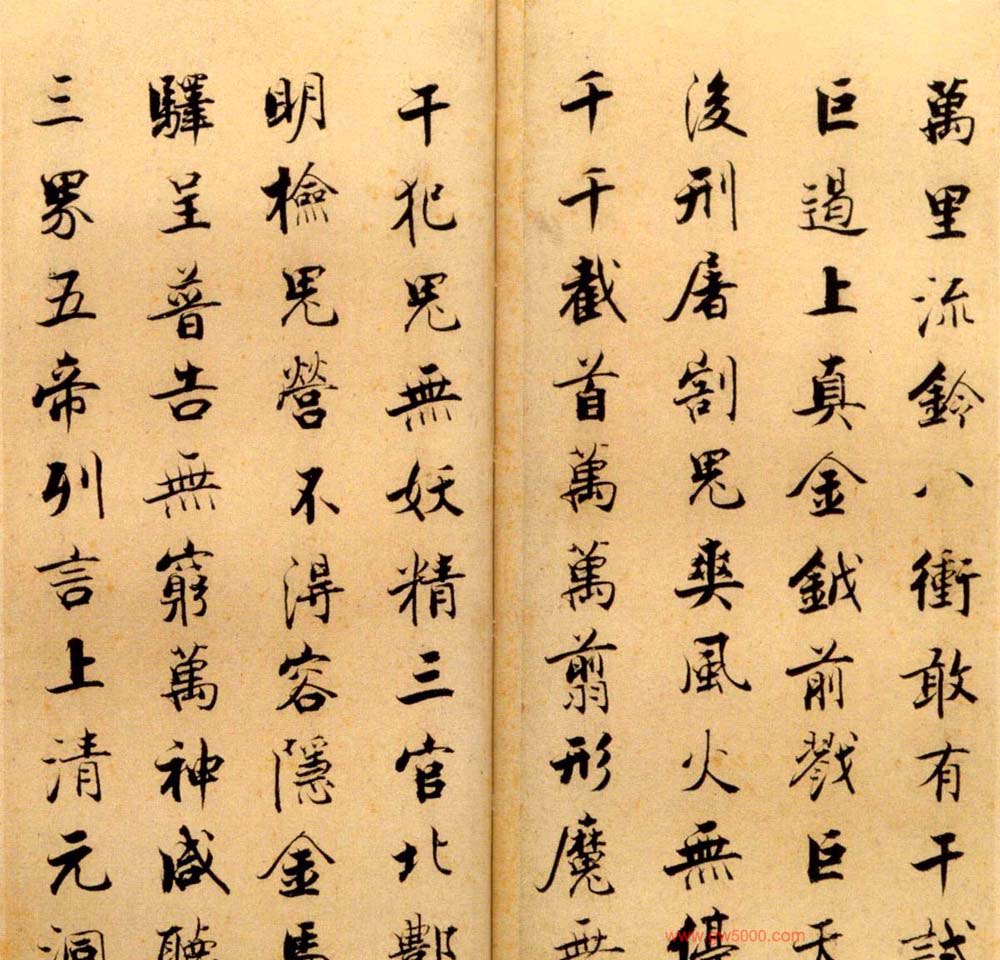 萬里流鈴八衝敢有干試
巨遏上真金鉞前戮巨天
後刑屠割鬼爽風火無停
千千截首萬萬翦形魔無
干犯鬼無妖精三官北酆
明檢鬼營不得容隱金馬
驛呈普告無窮萬神咸聽
三界五帝列言上清元洞
www.gw5000.com